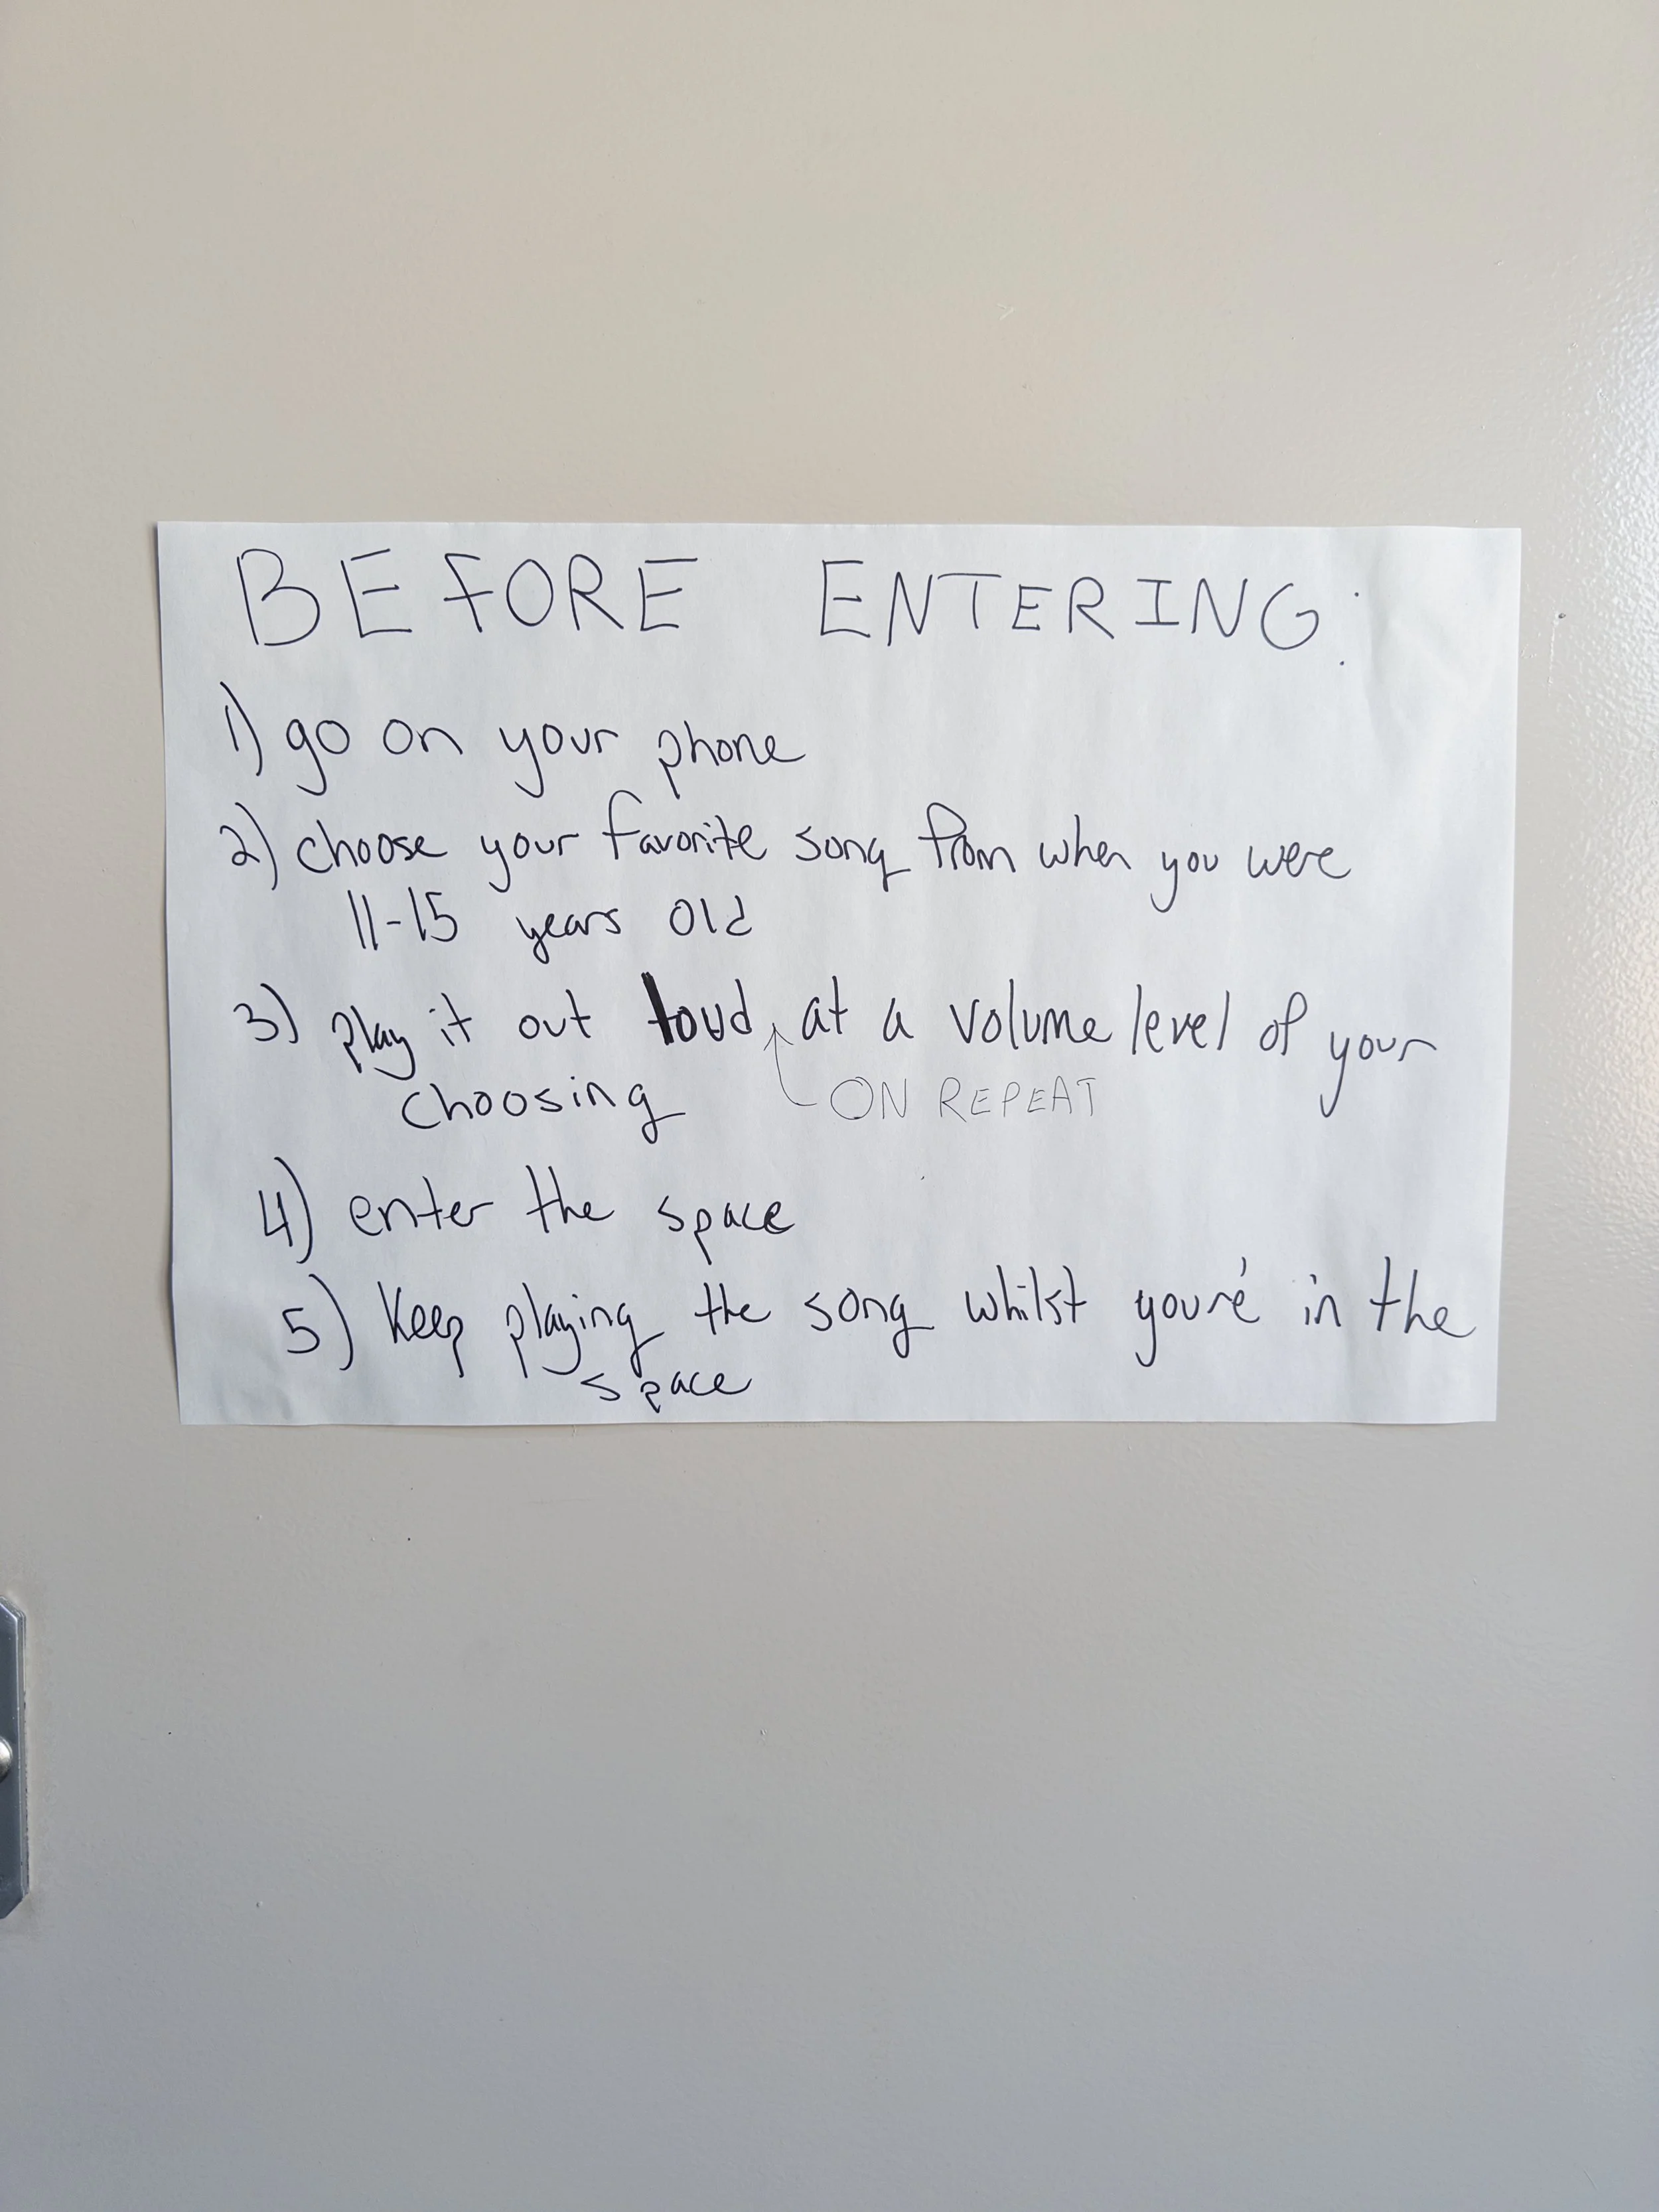 BEFORE ENTERING:
1) go on your phone
2) choose your favorite song from when you were
11-15 years old
3) play it out loud, at a volume level of your
choosing ON REPEAT
4) enter the space
5) Keep playing the song whilst you're in the
space